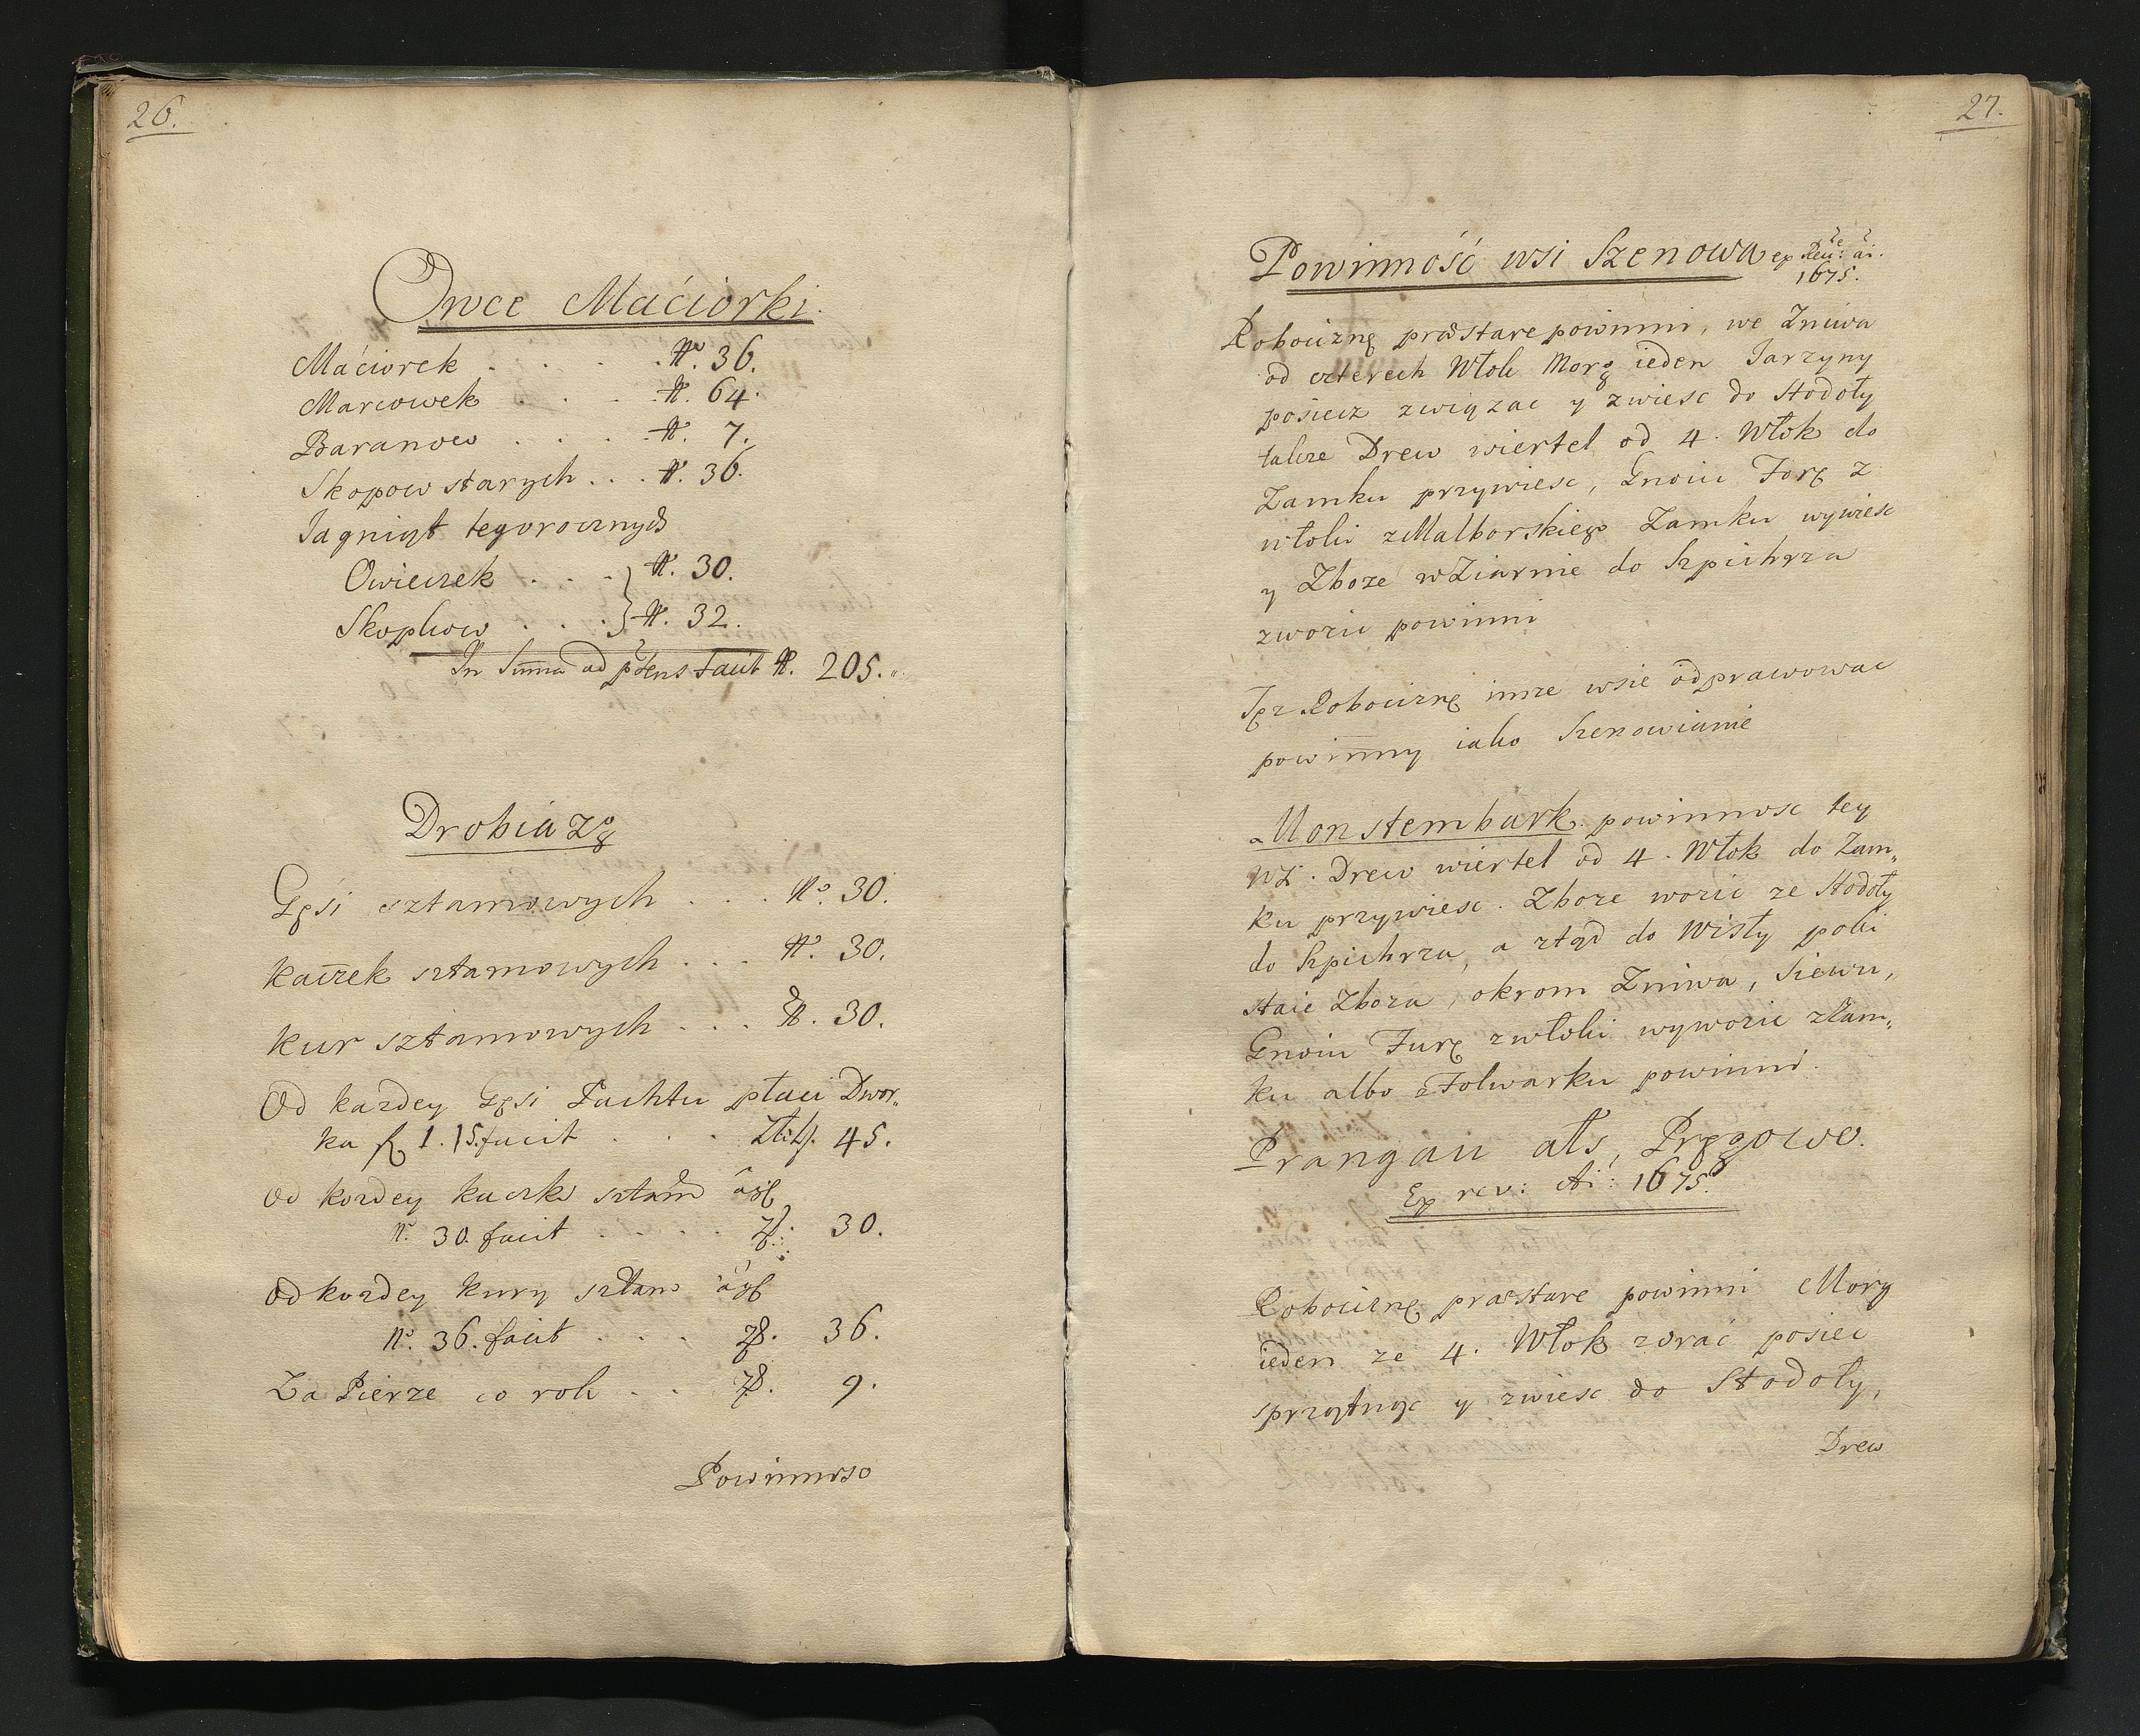 26.
Owce Maćiorki.
Maćiorek . . . . N° 36.
Marcowek . . . N. 64.
Baranow . . . . N. 7.
Skopow starych . . . N. 36.
Jagniąt tegorocznych
Owieczek . . . N. 30.
Skopkow . . . N. 32.
In Summa ad ptens facit N. 205.
Drobiazg
Gęsi sztamowych . . . N° 30.
Kaczek sztamowych . . . N. 30.
Kur sztamowych . . . N. 30.
Od kazdey Gęsi Pachtu płaci Dwor„
ka f 1. 15. facit . . . 45.
Od kozdey kaczki sztam
n. 30. facit . . . . zł. 30.
Od kozdey kury sztam
n° 36. facit . . . zł. 36.
Za Pierze co rok . . zł. 9.
Powinnosc
27.
Powinność wsi Szenowa ex Reu: ai.
1675.
Robociznę præstare powinni, we Zniwa
od czterech Włok Morg ieden Jarzyny
posiecz związac y zwiesc do Stodoły
takze Drew wiertel od 4. Włok do
Zamku przywiesc, Gnoiu Forę z
włoki z Malborskiego Zamku wywiesc
y Zboze w Ziarnie do Szpichrza
zwozic powinni
Tęz Robociznę insze wsie odprawowac
powinny iako Szenowianie
Monstembark. powinnosc tey
wsi. Drew wiertel od 4. Włok do Zam„
ku przywiesc. Zboze wozic ze Stodoły
do Szpichrza, a ztąd do Wisły poki
staie Zboza, okrom Zniwa, Siewu,
Gnoiu Furę z włoki wywozic z Zam„
ku albo z Folwarku powinni.
Prangau als, Pręgowo.
Ex rev: Ai: 1675.
Robociznę præstare powinni Morg
ieden ze 4. Włok zorać posiec
sprzątnąc y zwiesc do Stodoły,
Drew